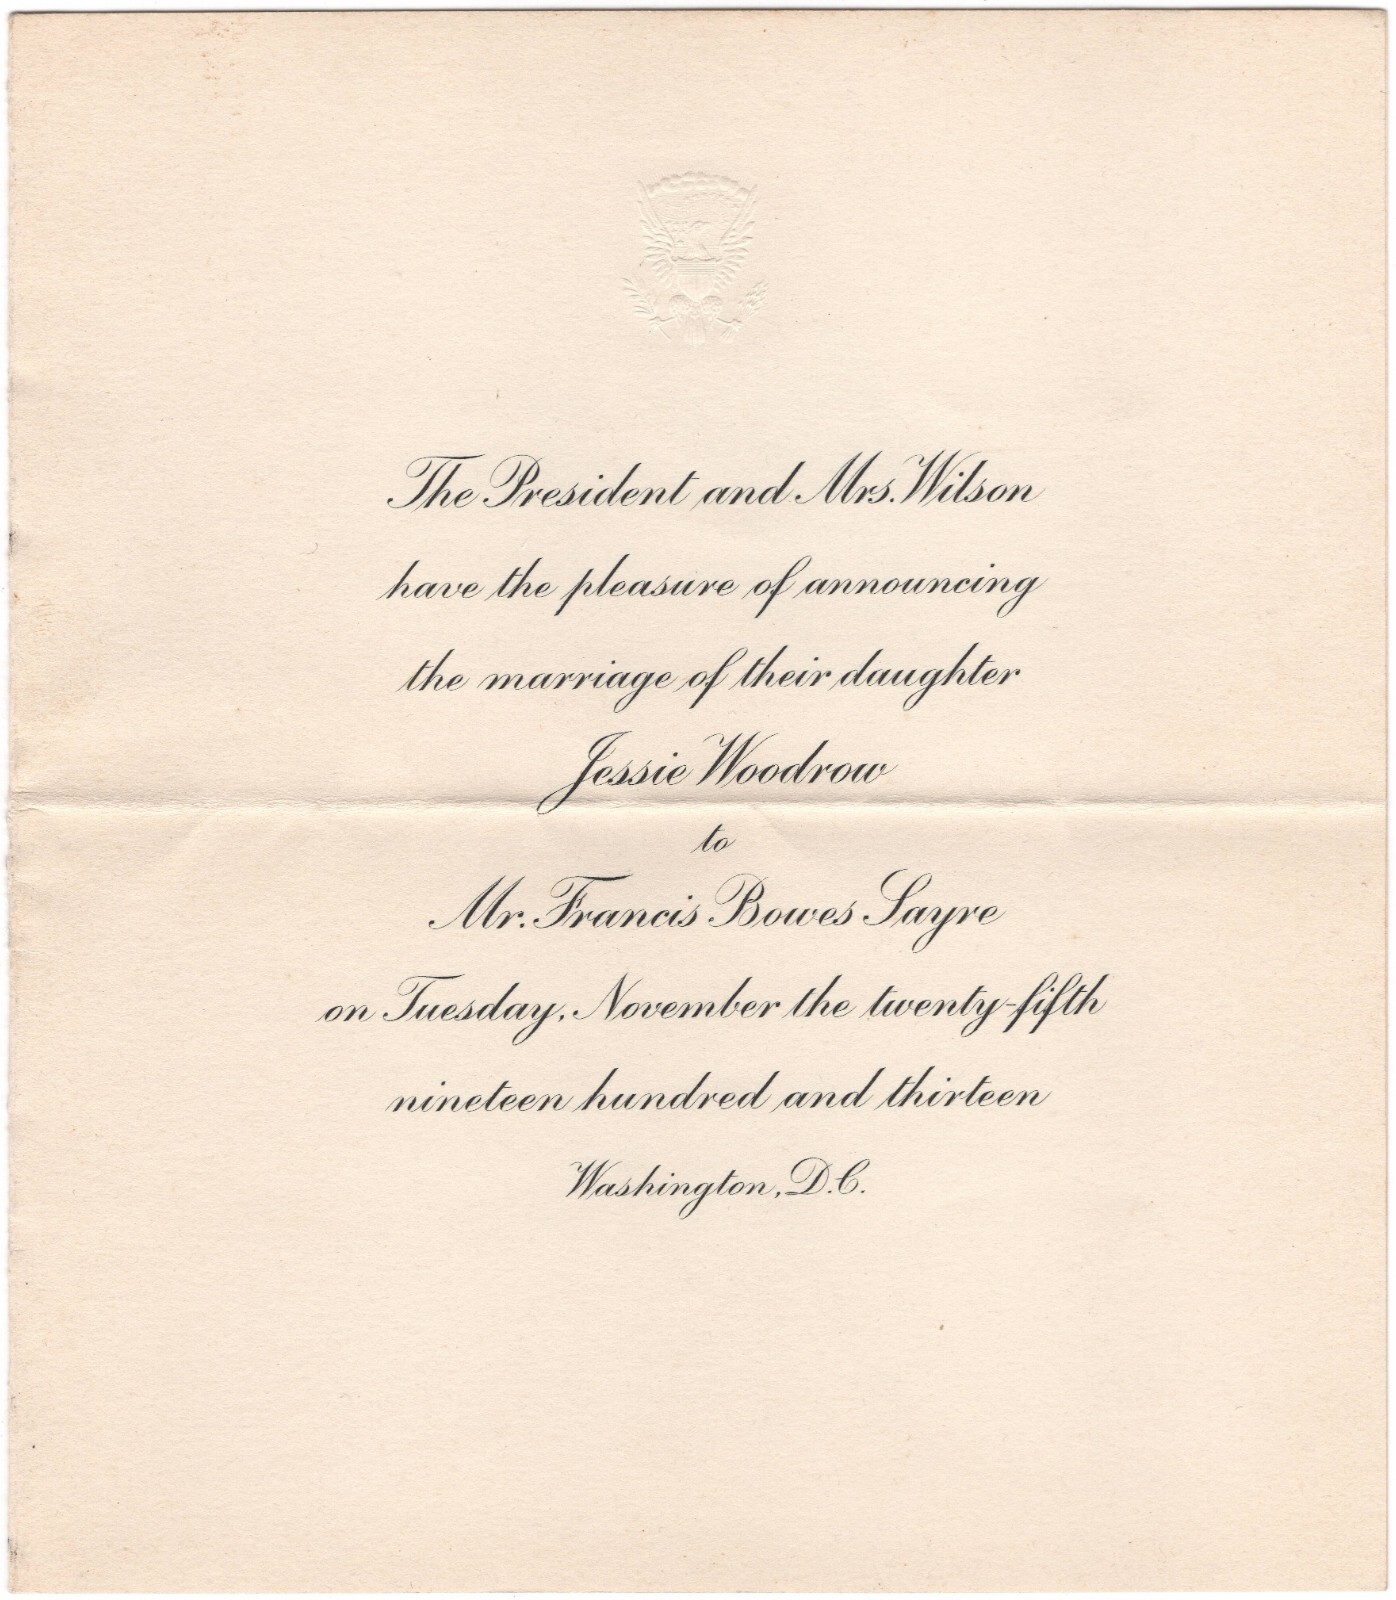 The President and Mrs. Wilson
have the pleasure of announcing
the marriage of their daughter
Jessie Woodrow
to
Mr. Francis Bowes Sayre
on Tuesday, November the twenty-fifth
nineteen hundred and thirteen
Washington, D.C.